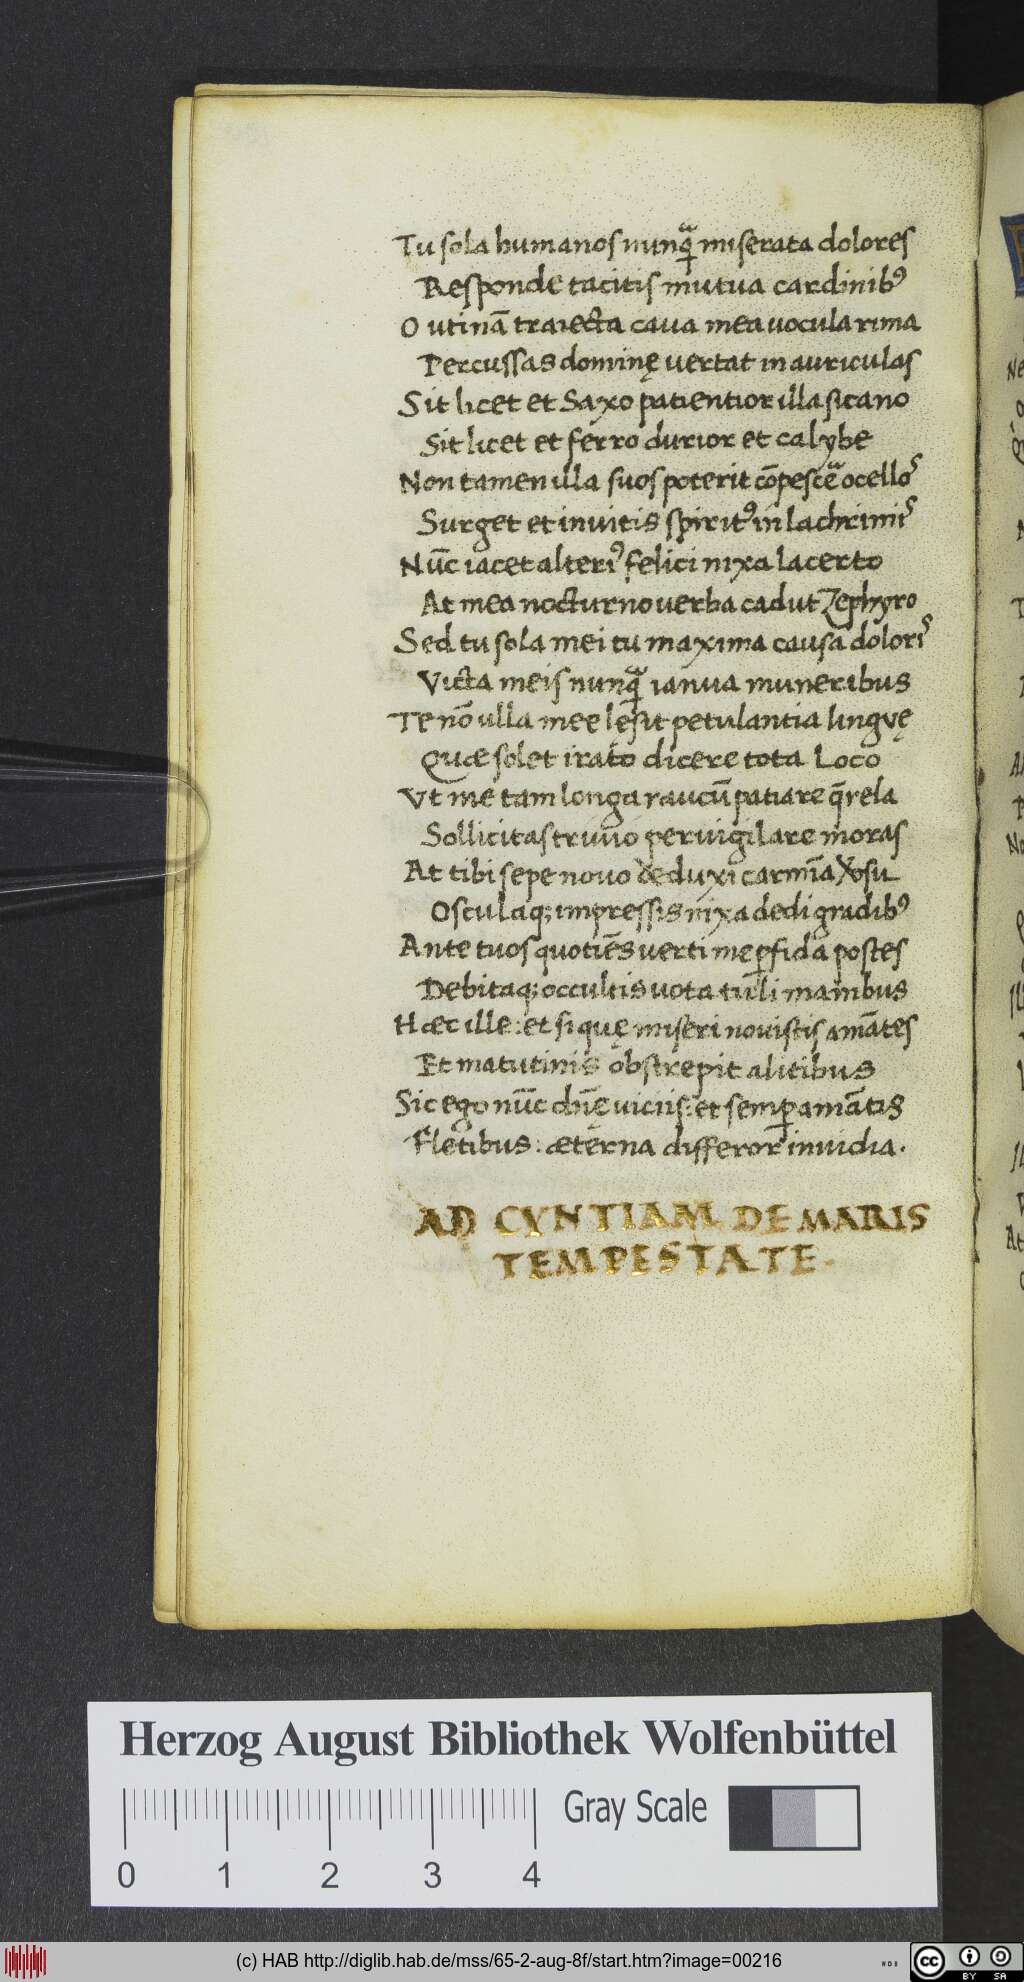 Tu sola humanos nunqᷓ miserata dolores
Responde tacitis mutua cardinibꝰ
O utinā traiecta caua mea uocula rima
Percussas dominę uertat in auriculas
Sit licet et Saxo patientior illa sicano
Sit licet et ferro durior et calybe
Non tamen illa suos poterit cōpesceᷓ ocellos
Surget et inuitis spiritꝰ in lachrimis
Nūc iacet alteriꝰ felici nixa lacerto
At mea nocturno uerba cadut Zephyro
Sed tu sola mei tu maxima causa doloris
Victa meis nunqᷓ ianua muneribus
Te nō ulla mee lęsit petulantia lingvę
Quæ solet irato dicere tota Loco
Vt me tam longa raucū patiare q̄rela
Sollicitas triuio peruigilare moras
At tibi sepe nouo deduxi carmīa Vosu
Osculaq; impressis nixa dedi gradibꝰ
Ante tuos quotiēs uerti me ꝑfida postes
Debitaq; occultis uota tuli manibus
Hæc ille: et si quę miseri nouistis amātes
Et matutinis obstrepit alitibus
Sic ego nūc dn̄ę uiciis: et semꝑ amātis
Fletibus: æterna differor inuidia.
AD CYNTIAM DE MARIS
TEMPESTATE.
Herzog August Bibliothek Wolfenbüttel
Gray Scale
0 1 2 3 4
(c) HAB http://diglib.hab.de/mss/65-2-aug-8f/start.htm?image=00216
WDB
cc BY SA